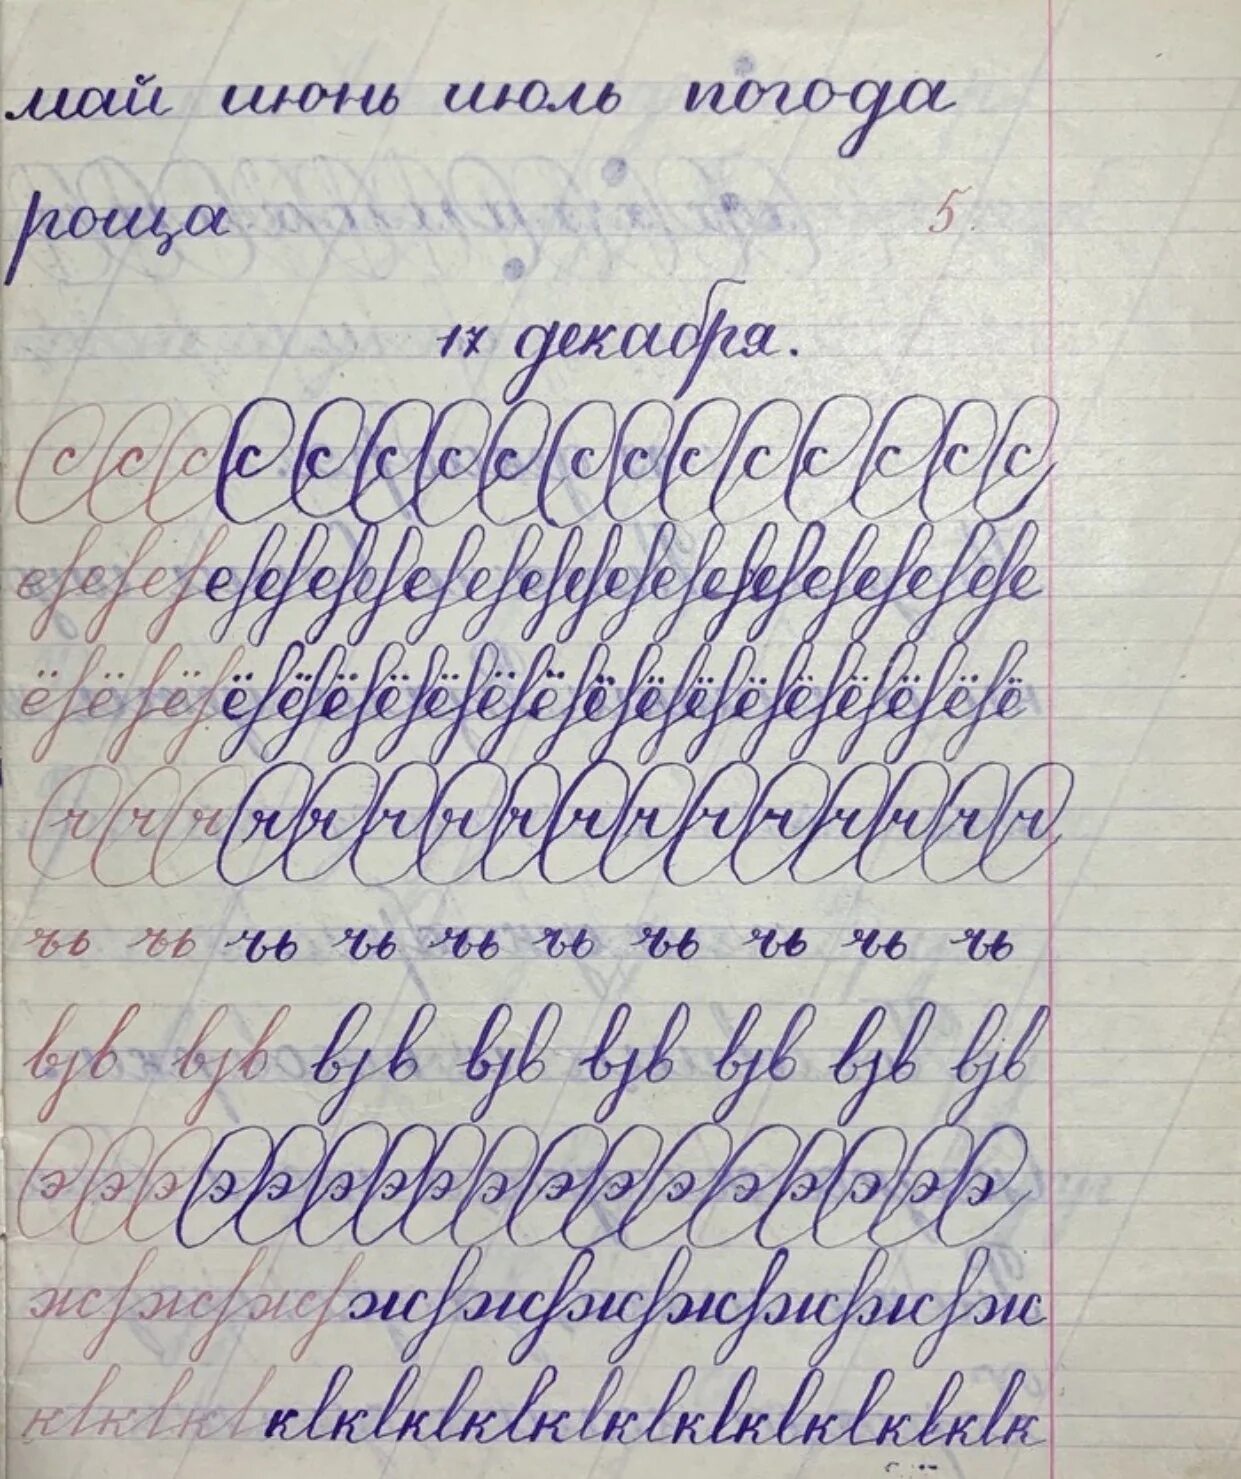 май июнь июль погода
роща 5
17 декабря.
с с с с с с с с с с с с с с с с
е е е е е е е е е е е е е е е е е е
ё ё ё ё ё ё ё ё ё ё ё ё ё ё ё ё ё ё
ч ч ч ч ч ч ч ч ч ч ч ч ч ч ч ч
чь чь чь чь чь чь чь чь чь чь
вjв вjв вjв вjв вjв вjв вjв вjв
э э э э э э э э э э э э э э э э э
ж ж ж ж ж ж ж ж ж ж
к к к к к к к к к к к к к к